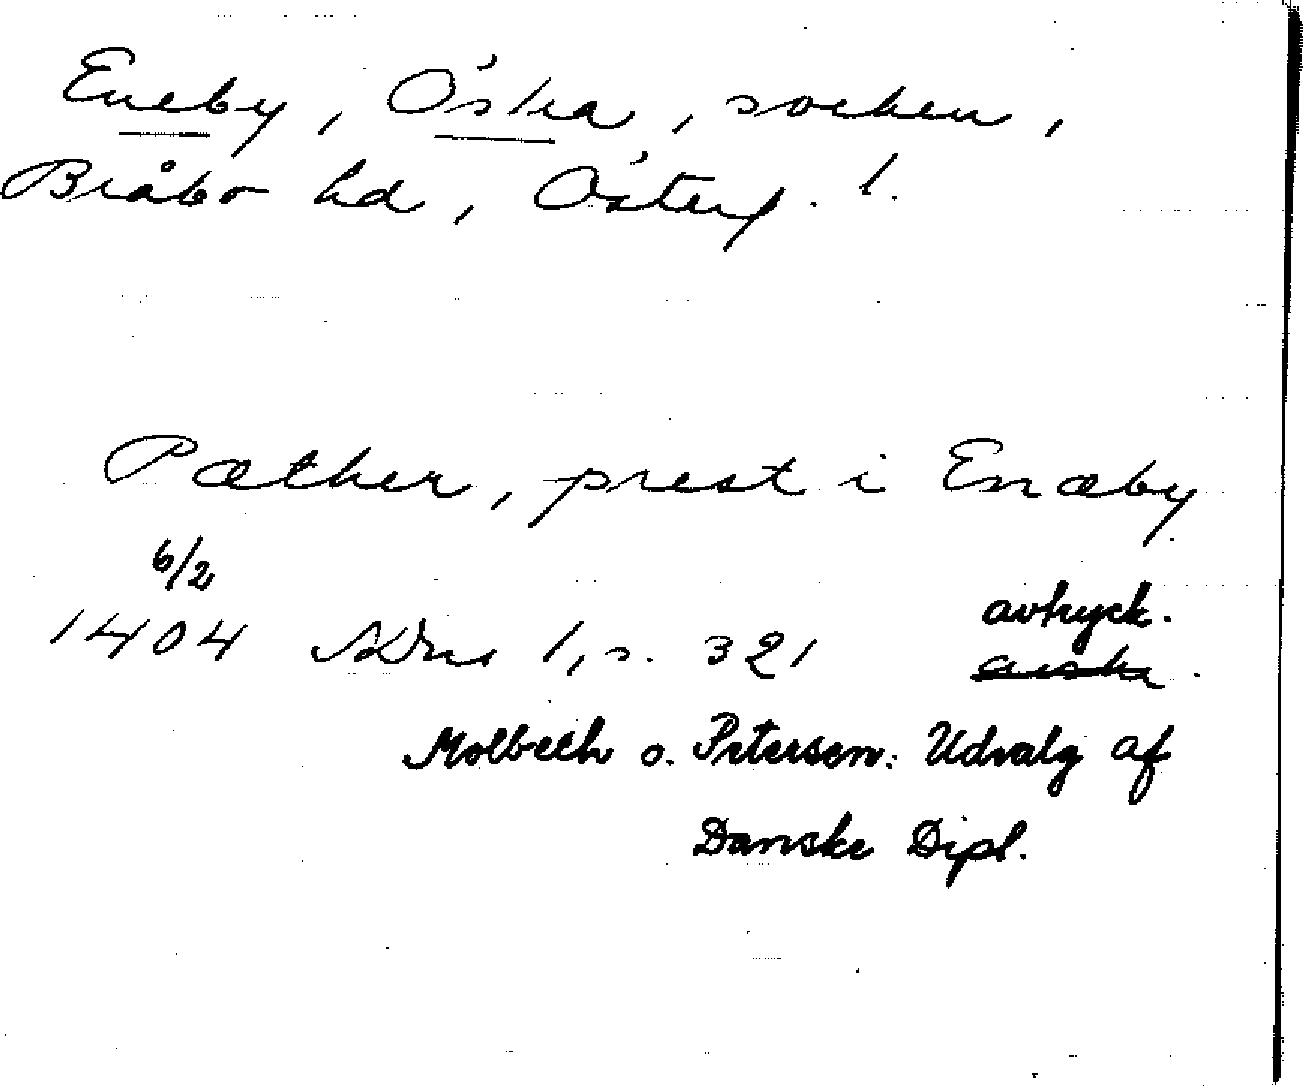 Eneby, Östra, socken,
Bråbo hd, Österg. l.
Pæther, prest i Enæby
6/2
1404 SDns 1, s. 321 avtryck.
Molbech o. Petersen: Udvalg af
Danske Dipl.